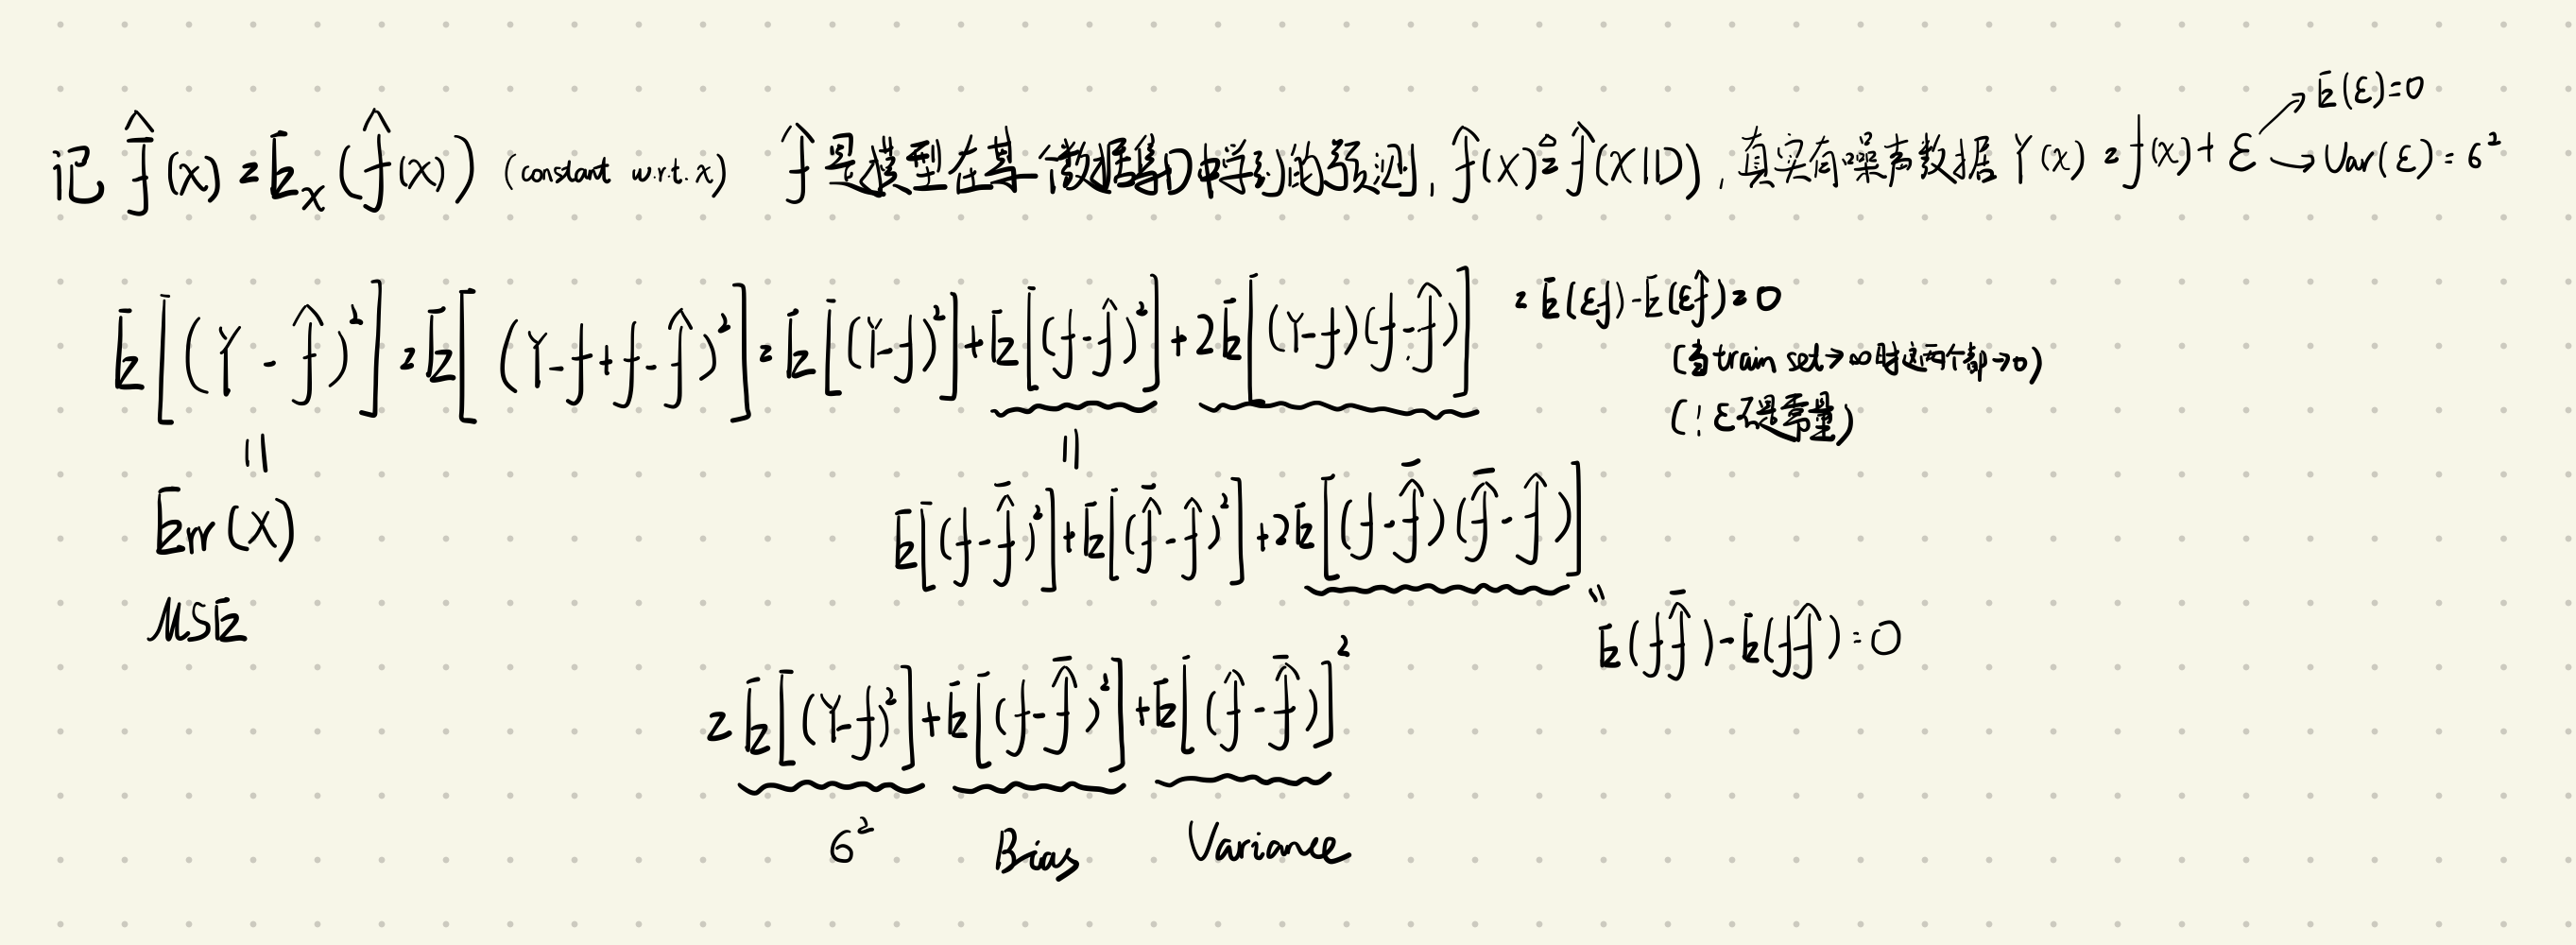 记 f̂̄(x) = E_x(f̂(x)) (constant w.r.t. x) f̂ 是模型在某个数据集D中学到的预测, f̂(x) ≜ f̂(x|D), 真实有噪声数据 Y(x) = f(x) + ε → E(ε)=0
→ Var(ε) = σ²
E[(Y - f̂)²] = E[(Y-f+f-f̂)²] = E[(Y-f)²] + E[(f-f̂)²] + 2E[(Y-f)(f-f̂)] = E(εf) - E(εf̂) = 0
(当train set→∞时这两个都→0)
(! ε不是常量)
||
||
Err(x)
E[(f-f̂̄)²] + E[(f̂̄-f̂)²] + 2E[(f-f̂̄)(f̂̄-f̂)]
MSE
||
E(f f̂̄) - E(f f̂) = 0
= E[(Y-f)²] + E[(f-f̂̄)²] + E[(f̂-f̂̄)]²
σ² Bias Variance